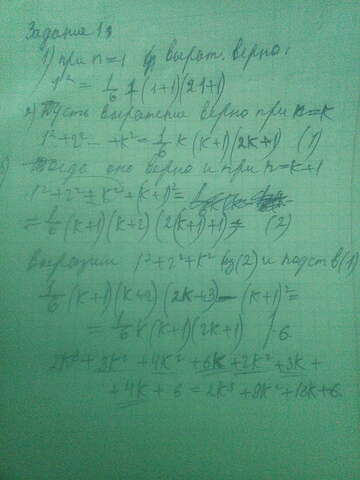 Задание 1
1) при n=1 выраж. верно:
1² = 1/6 1 (1+1)(2·1+1)
2) Пусть выражение верно при n=k
1²+2²...+k² = 1/6 k (k+1)(2k+1) (1)
оно верно и при n=k+1
1²+2²+k²+(k+1)² =
= 1/6 (k+1)(k+2)(2(k+1)+1) (2)
выразим 1²+2²+k² из(2) и подст в(1)
1/6 (k+1)(k+2)(2k+3) - (k+1)² =
= 1/6 k(k+1)(2k+1) | · 6
2k³ + 3k² + 4k² + 6k + 2k² + 3k +
+ 4k + 6 = 2k³ + 8k² + 12k + 6